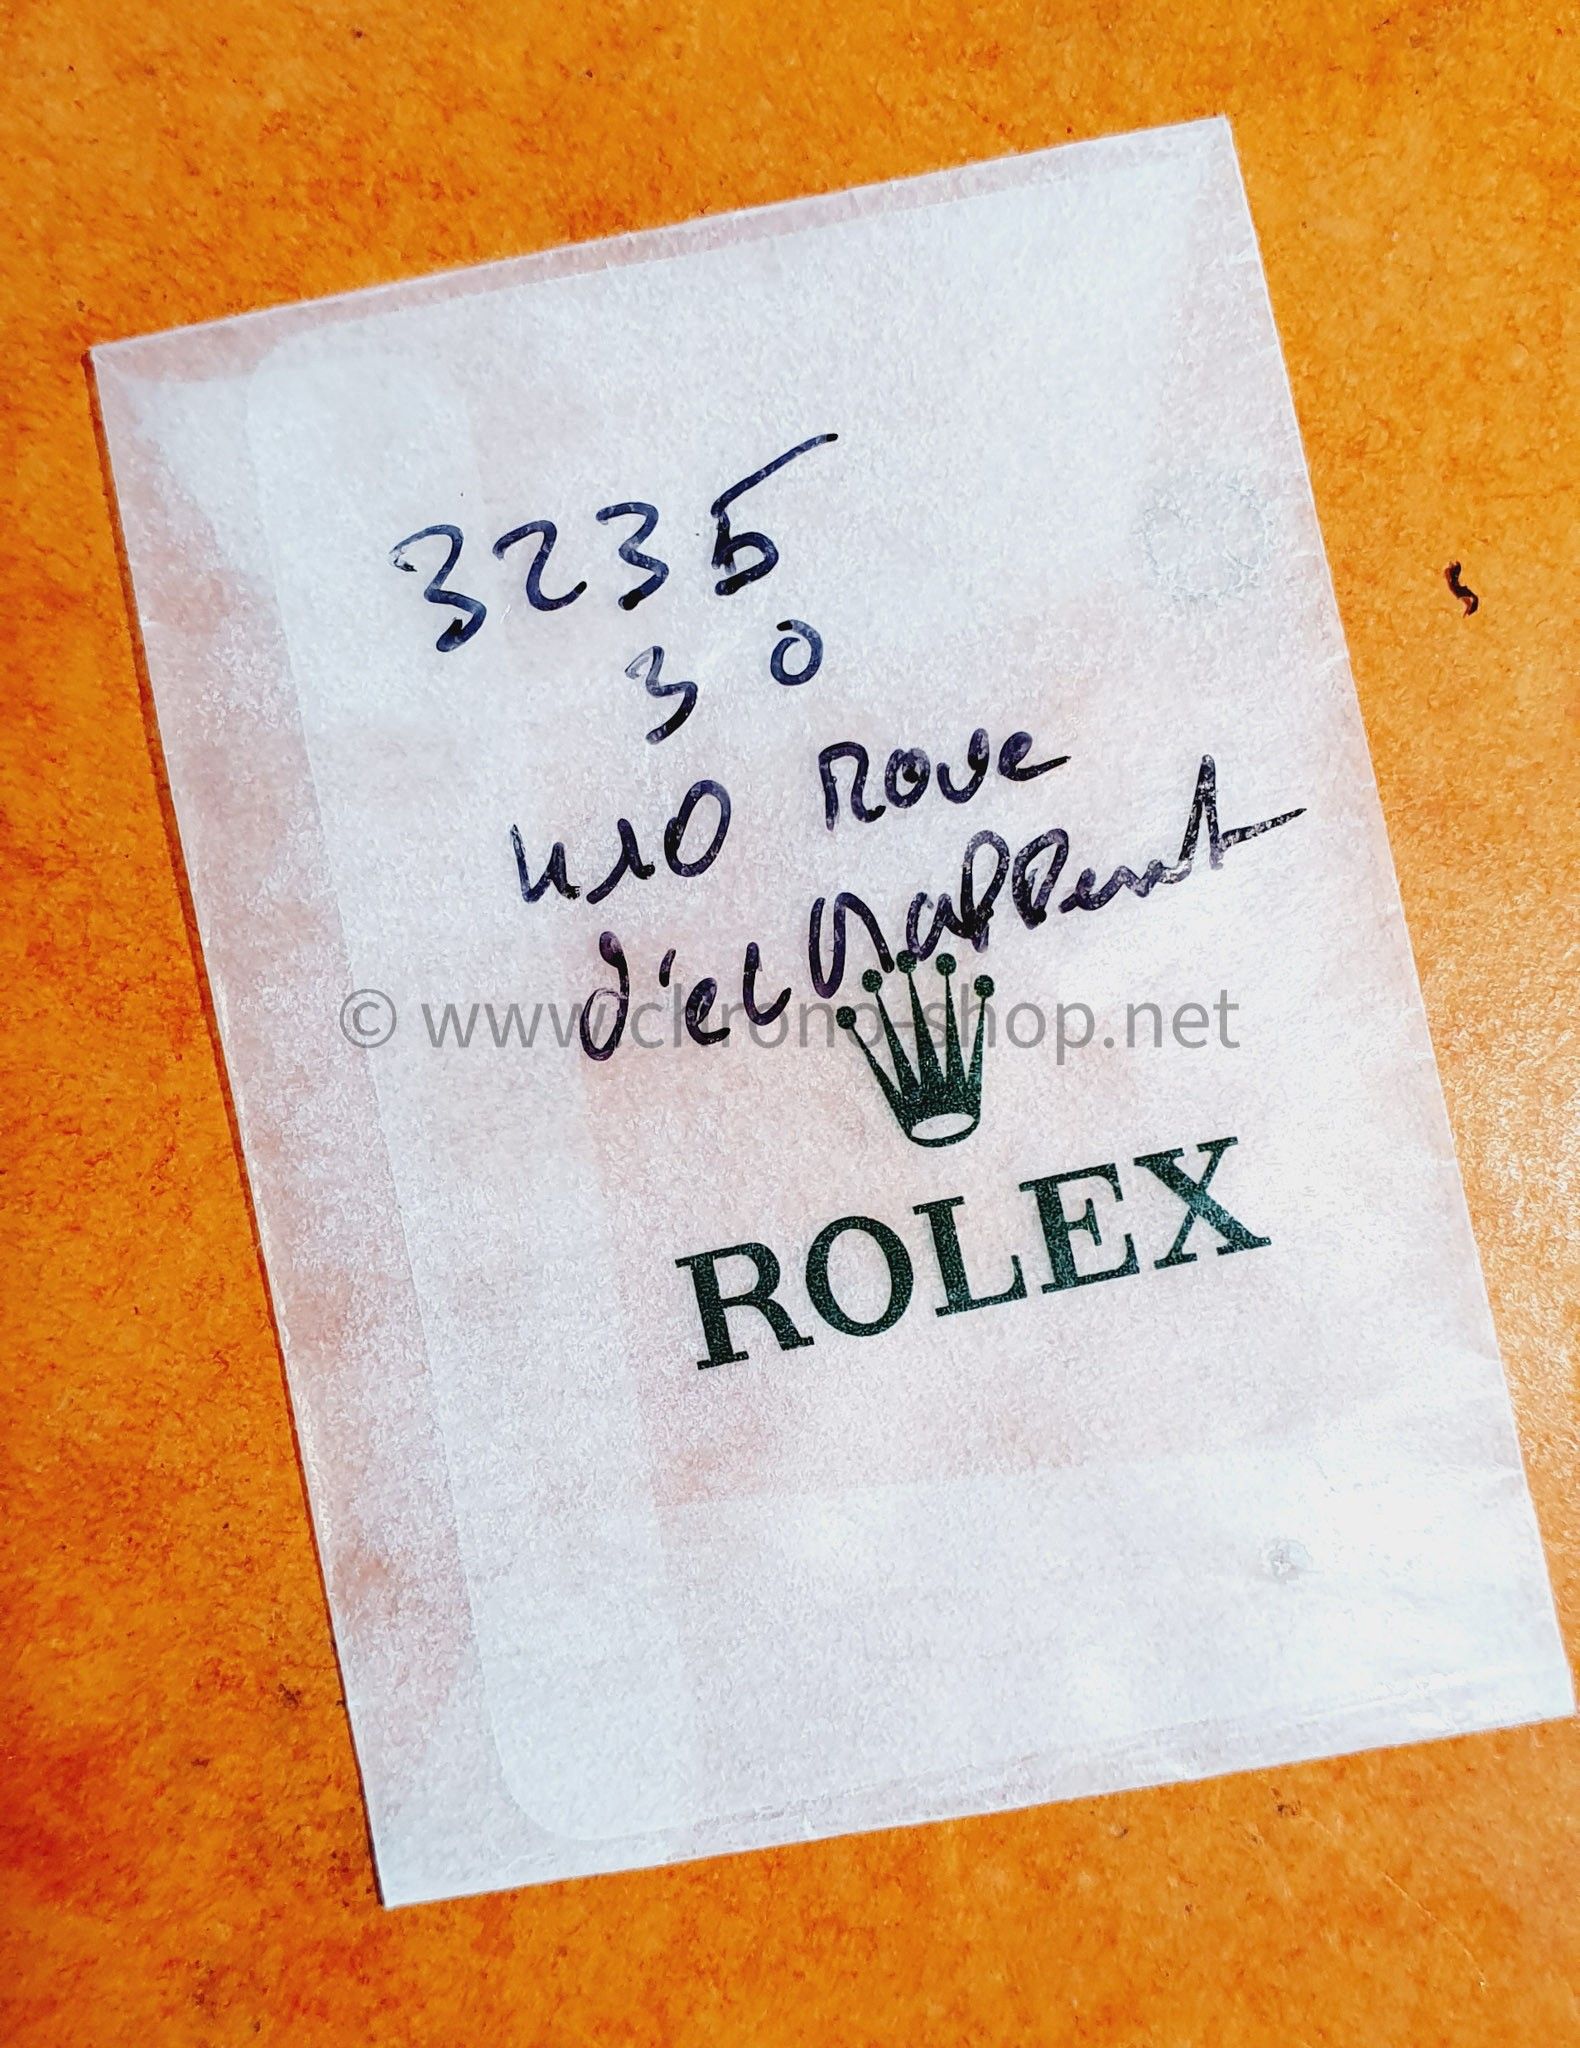 3235
3 0
410 Roue
d'echappement
© www.ckrono-shop.net
ROLEX